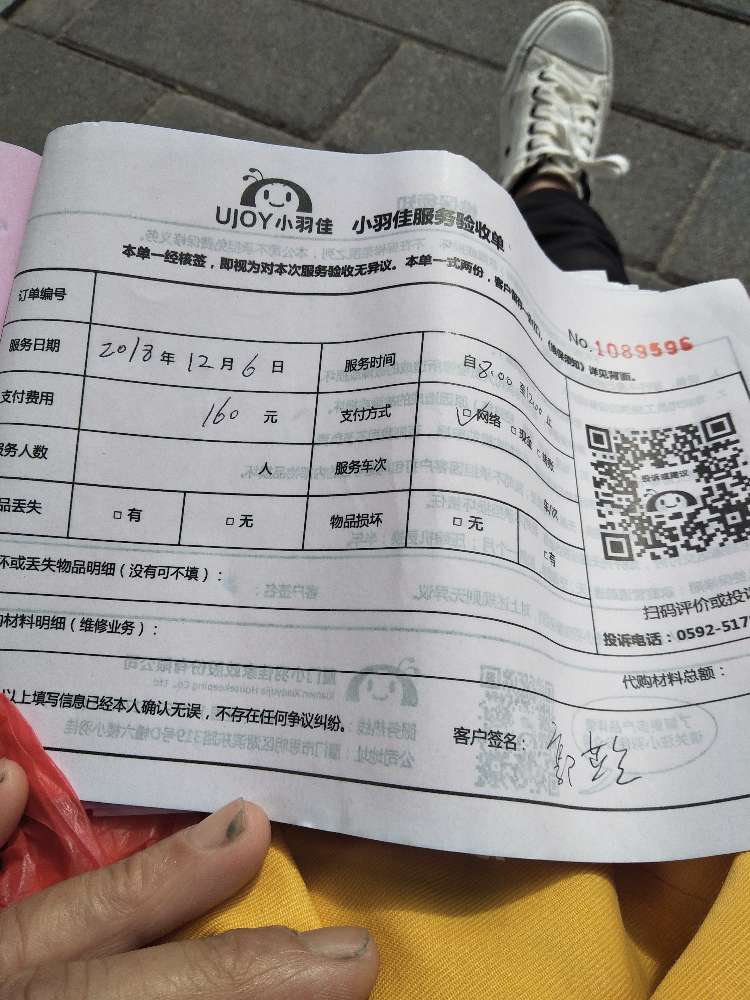 UJOY小羽佳 小羽佳服务验收单
本单一经核签，即视为对本次服务验收无异议。本单一式两份，客户
《维保须知》详见背面。
No.1089596
订单编号
服务日期 2018年12月6日 服务时间 自8:00至12:00止
支付费用 160元 支付方式 ☑网络 □现金
服务人数 人 服务车次 车/次
品丢失 □有 □无 物品损坏 □无 □有
投诉或建议
扫码评价或投诉
投诉电话：0592-517
坏或丢失物品明细（没有可不填）：
购材料明细（维修业务）：
代购材料总额：
以上填写信息已经本人确认无误，不存在任何争议纠纷。
客户签名：